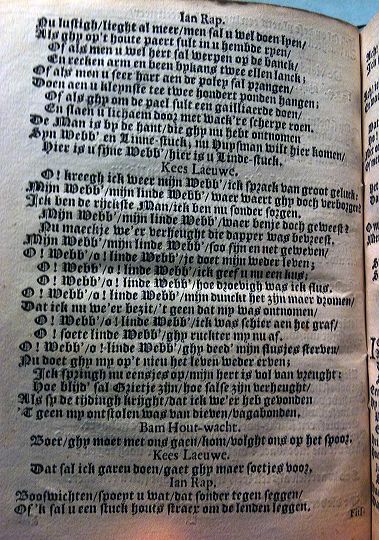 Jan Rap.
Nu lustigh/lieght al meer/men sal u wel doen spen/
Als ghy op't houte paert sult in u hembde ryen/
Of als men u wel hert sal werpen op de banck/
En recken arm en been bykans twee ellen lanck;
Of als men u seer hart aen de poley sal prangen/
Doen aen u kleynste tee twee hondert ponden hangen;
Of als ghy om de pael sult een gailliaerde doen/
En slaen u lichaem door met wack're scherpe roen.
De Man is by de hant/die ghy nu hebt ontnomen
Syn Webb' en Linne-stuck, nu Huysman wilt hier komen/
Hier is u fijne Webb'/hier is u Linde-stuck.
Kees Laeuwe.
O! kreegh ick weer mijn Webb'/ick sprack van groot geluck:
Mijn Webb'/mijn linde Webb'/waer waert ghy doch verborgen?
Ick ben de rijckste Man/ick ben nu sonder sorgen.
Mijn Webb'/mijn linde Webb'/waer benje doch geweest?
Nu maeckje we'er verheught die dapper was bevreest.
Mijn Webb'/mijn linde Webb'/soo fijn en net geweven/
O! Webb'/o! linde Webb'/je doet mijn weder leven;
O! Webb'/o! linde Webb'/ick geef u nu een kus;
O! Webb'/o! linde Webb'/hoe droevigh was ick flus.
O! Webb'/o! linde Webb'/mijn dunckt het zijn maer droomen/
Dat ick nu we'er bezit/'t geen dat my was ontnomen/
O! Webb'/o! linde Webb'/ick was schier aen het graf/
O! soete linde Webb'/ghy ruckter my nu af.
O! Webb'/o! linde Webb'/ghy deed' mijn flusjes sterven/
Nu doet ghy my op't nieu het leven weder erven;
Ick spzingh nu eensjes op/mijn hert is vol van vreught:
Hoe blijd' sal Grietje zijn/hoe salse zijn verheught/
Als sy de tijdingh krijght/dat ick we'er heb gevonden
'T geen my ontstolen was van dieven/vagabonden.
Bam Hout-wacht.
Boer/ghy moet met ons gaen/kom/volght ons op het spoor.
Kees Laeuwe.
Dat sal ick garen doen/gaet ghy maer soetjes voor,
Jan Rap.
Booswichten/spoeyt u wat/dat sonder tegen seggen/
Of 'k sal u een stuck houts straex om de lenden leggen.